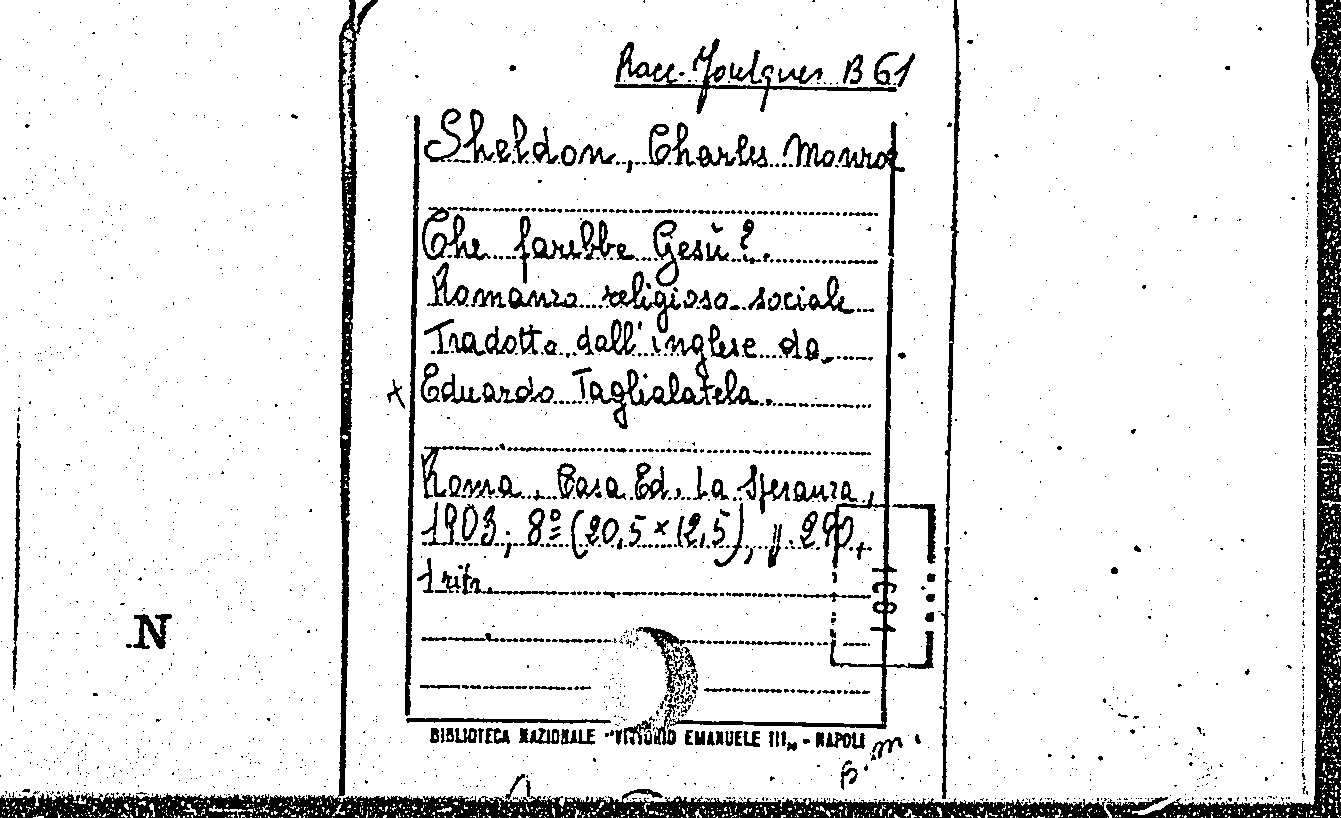 Racc. Foulques B 61
Sheldon, Charles Monroe
Che farebbe Gesù?.
Romanzo religioso-sociale
Tradotto dall'inglese da
x Eduardo Taglialatela.
Roma, Casa Ed. La Speranza,
1903; 8º (20,5 x 12,5), p. 290,
1 ritr.
N
BIBLIOTECA NAZIONALE "VITTORIO EMANUELE III„ - NAPOLI